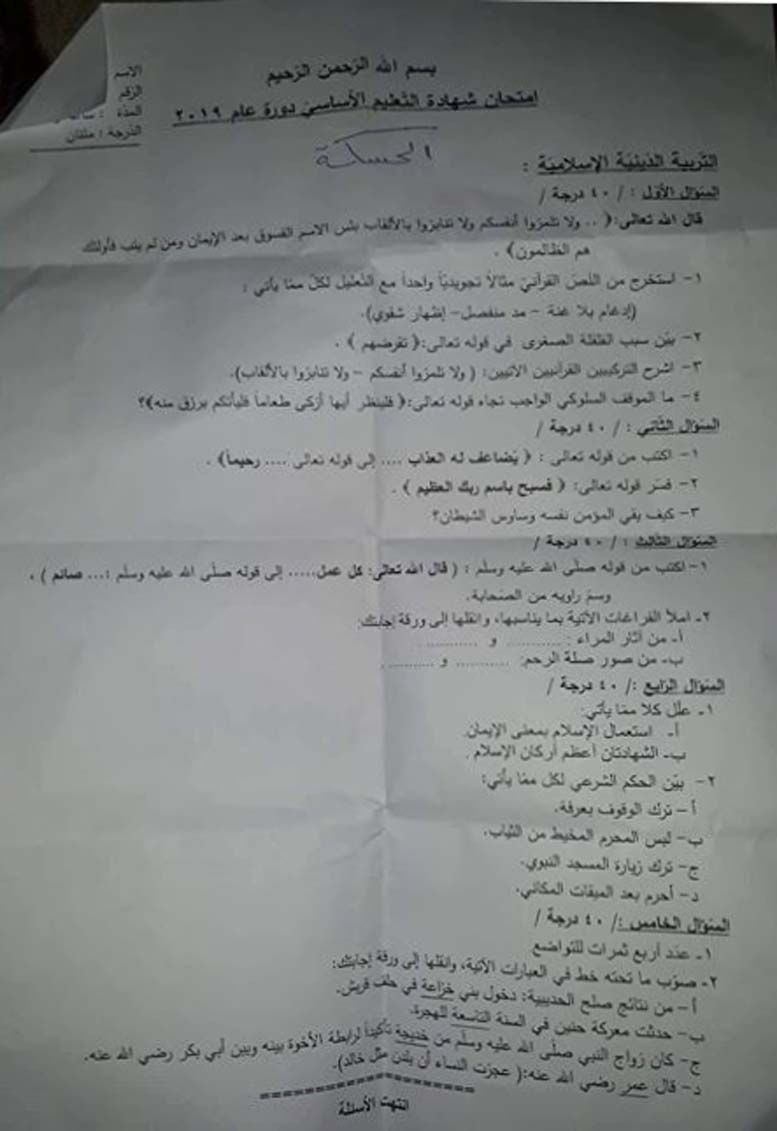 بسم الله الرّحمن الرّحيم
امتحان شهادة التّعليم الأساسيّ دورة عام ٢٠١٩
الاسم
الرّقم
المدّة :
الدرجة : مئتان
الحسكة
التّربية الدّينيّة الإسلاميّة :
السّؤال الأوّل : / ٤٠ درجة /
قال الله تعالى: ﴿ .. ولا تلمزوا أنفسكم ولا تنابزوا بالألقاب بئس الاسم الفسوق بعد الإيمان ومن لم يتب فأولئك
هم الظالمون﴾ .
١- استخرج من النّصّ القرآنيّ مثالاً تجويديّاً واحداً مع التّعليل لكلّ ممّا يأتي :
(إدغام بلا غنة - مد منفصل- إظهار شفوي).
٢- بيّن سبب القلقلة الصغرى في قوله تعالى: ﴿ تقرضهم ﴾ .
٣- اشرح التركيبين القرآنيين الآتيين: ( ولا تلمزوا أنفسكم - ولا تنابزوا بالألقاب).
٤- ما الموقف السلوكي الواجب تجاه قوله تعالى: ﴿ فلينظر أيها أزكى طعاماً فليأتكم برزق منه﴾؟
السّؤال الثّاني : / ٤٠ درجة /
١- اكتب من قوله تعالى : ﴿ يضاعف له العذاب .... إلى قوله تعالى .... رحيماً﴾ .
٢- فسّر قوله تعالى: ﴿ فسبح باسم ربك العظيم ﴾ .
٣- كيف يقي المؤمن نفسه وساوس الشيطان؟
السّؤال الثالث : / ٤٠ درجة /
١- اكتب من قوله صلّى الله عليه وسلّم : ( قال الله تعالى: كل عمل..... إلى قوله صلّى الله عليه وسلّم :... صائم ) .
وسمّ راويه من الصّحابة.
٢- املأ الفراغات الآتية بما يناسبها، وانقلها إلى ورقة إجابتك:
أ- من آثار المراء : ........... و ...........
ب- من صور صلة الرحم: ........... و ...........
السّؤال الرّابع :/ ٤٠ درجة /
١- علّل كلا ممّا يأتي:
أ- استعمال الإسلام بمعنى الإيمان.
ب- الشهادتان أعظم أركان الإسلام .
٢- بيّن الحكم الشرعي لكل ممّا يأتي:
أ - ترك الوقوف بعرفة.
ب- لبس المحرم المخيط من الثياب.
ج- ترك زيارة المسجد النبوي.
د- أحرم بعد الميقات المكاني.
السّؤال الخامس :/ ٤٠ درجة /
١- عدّد أربع ثمرات للتواضع
٢- صوّب ما تحته خط في العبارات الآتية، وانقلها إلى ورقة إجابتك:
أ - من نتائج صلح الحديبية: دخول بني خزاعة في حلف قريش.
ب- حدثت معركة حنين في السنة التاسعة للهجرة.
ج- كان زواج النبي صلّى الله عليه وسلّم من خديجة تأكيداً لرابطة الأخوة بينه وبين أبي بكر رضي الله عنه.
د- قال عمر رضي الله عنه: ( عجزت النساء أن يلدن مثل خالد).
انتهت الأسئلة